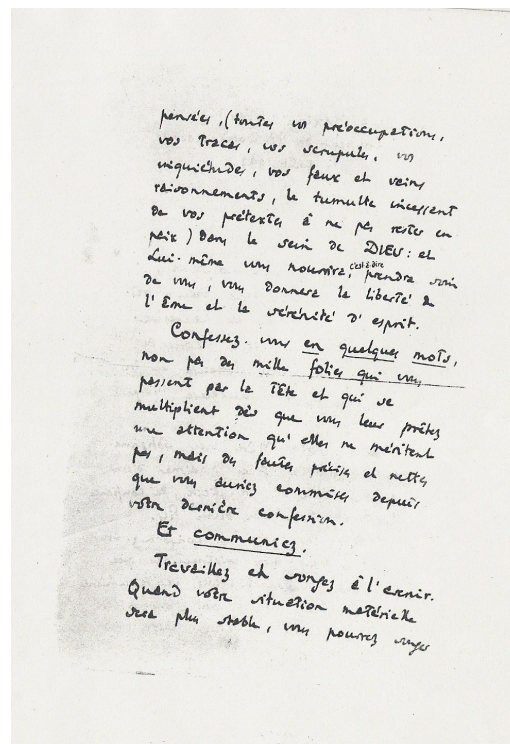 pensées, (toutes vos préoccupations,
vos tracas, vos scrupules, vos
inquiétudes, vos faux et vains
raisonnements, le tumulte incessant
de vos prétextes à ne pas rester en
paix) dans le sein de DIEU : et
Lui-même vous nourrira, c'est-à-dire prendra soin
de vous, vous donnera la liberté de
l'âme et la sérénité d'esprit.
Confessez-vous en quelques mots,
non pas des mille folies qui vous
passent par la tête et qui se
multiplient dès que vous leur prêtez
une attention qu'elles ne méritent
pas, mais des fautes précises et nettes
que vous auriez commises depuis
votre dernière confession.
Et communiez.
Travaillez et songez à l'avenir.
Quand votre situation matérielle
sera plus stable, vous pourrez songer